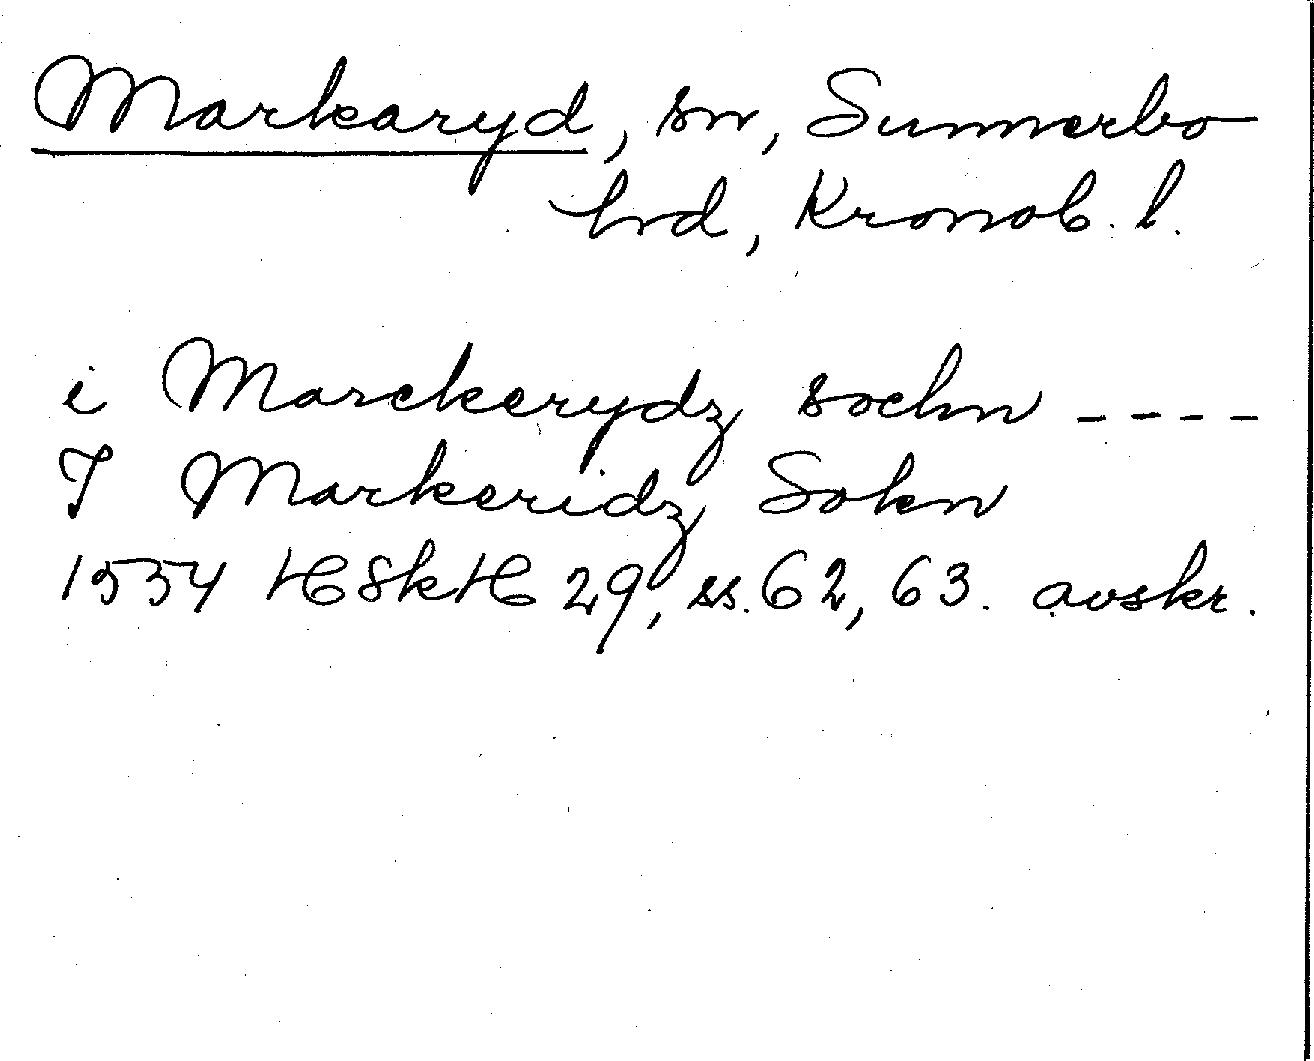 Markaryd, sn, Sunnerbo
hrd, Kronob. l.
i Marckerydz sochn ----
I Markeridz Sokn
1554 HSkH 29, ss. 62, 63. avskr.